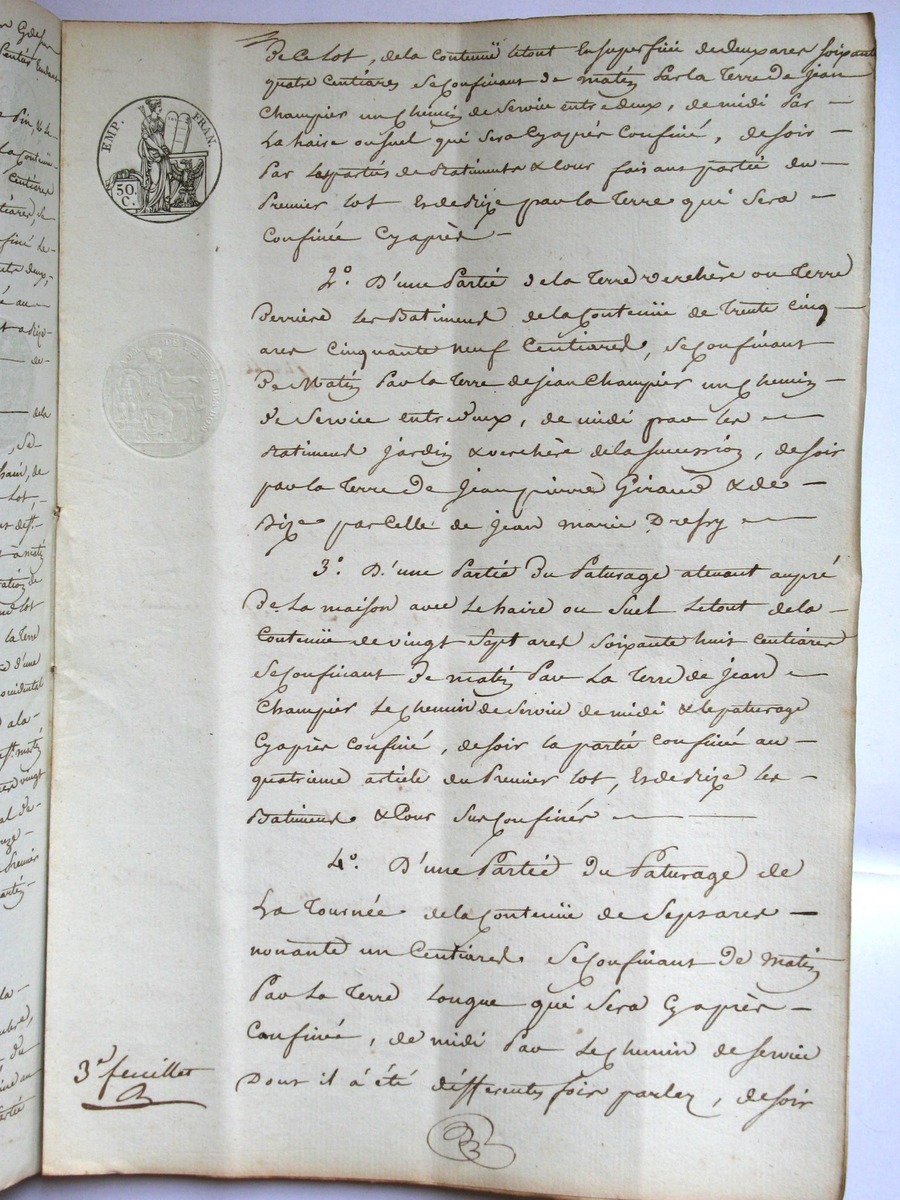 EMP. FRAN.
50. C.
De Ce lot, de la Contenüe le tout En superficie de deux ares soixante
quatre Centiares se Confinant de matin Par la Terre de jean
Champier un Chemin de Service entre deux, de midi Par —
La haire ou suel qui sera Cy après Confiné, de soir —
Par les parties de Batiments & Cour faisant partie du
Premier lot Et de Bize par la Terre qui Sera —
Confinée Cy après —
2.° D'une Partie de la Terre verchère ou Terre
Derrière les Batiments de la Contenüe de Trente Cinq —
ares Cinquante neuf Centiares, se Confinant
De Matin Par la Terre de jean Champier un Chemin —
de Service entre deux, de midi par les —
Batiments jardin & verchère de la succession, de soir
par la Terre de jean pierre Giraud & de —
Bize par Celle de jean marie Drefry —
3.° D'une Partie du Paturage atenant aupré
De La maison avec Le haire ou Suel Le tout de la —
Contenüe de vingt Sept ares Soixante huit Centiares
Se Confinant De matin Par La Terre de jean —
Champier Le Chemin de Service de midi & le paturage
Cy après Confiné, de soir la partie Confinée au —
quatrieme article du Premier lot, Et de Bize les —
Batiments & Cour sus Confinés —
4.° D'une Partie du Paturage de
La Tournée de la Contenüe de Sept ares —
nonante un Centiares Se Confinant de Matin
Par La Terre Longue qui Sera Cy après —
Confinée, de midi Par Le Chemin de Service
Dont il à été différentes fois parlez, de soir
3.e feuillet